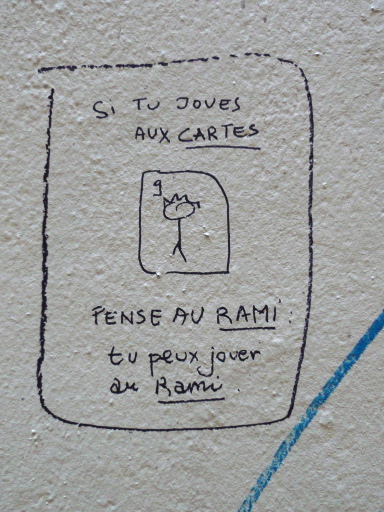 SI TU JOUES
AUX CARTES
9
PENSE AU RAMI :
tu peux jouer
au Rami.